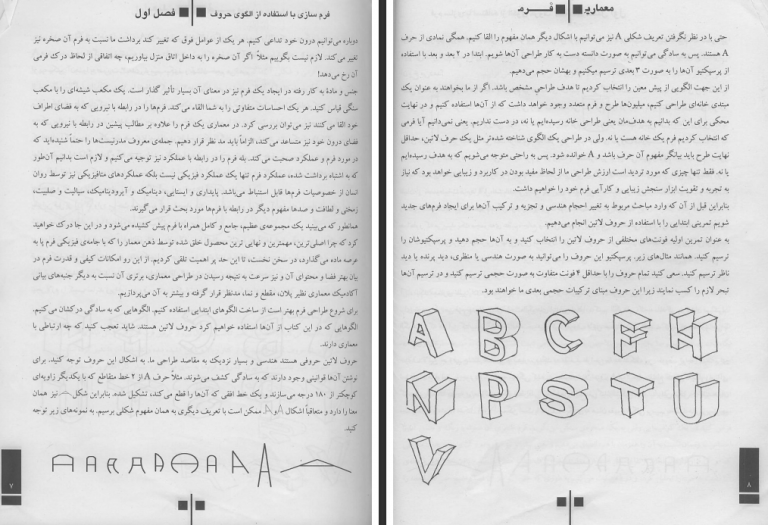 معماری فرم
حتی با در نظر نگرفتن تعریف شکلی A نیز می‌توانیم با اشکال دیگر همان مفهوم را القا کنیم. همگی نمادی از حرف
A هستند. پس به سادگی می‌توانیم به صورت دانسته دست به کار طراحی آن‌ها شویم. ابتدا در ۲ بعد و بعد با استفاده
از پرسپکتیو آن‌ها را به صورت ۳ بعدی ترسیم میکنیم و بهشان حجم می‌دهیم.
از این جهت الگویی از پیش معین را انتخاب کردیم تا هدف طراحی مشخص باشد. اگر از ما بخواهند به عنوان یک
مبتدی خانه‌ای طراحی کنیم، میلیون‌ها طرح و فرم متعدد وجود خواهد داشت که از آن‌ها استفاده کنیم و در نهایت
محکی برای این که بدانیم به هدف‌مان یعنی طراحی خانه رسیده‌ایم یا نه، در دست نداریم. یعنی نمی‌دانیم آیا فرمی
که انتخاب کردیم فرم یک خانه هست یا نه. ولی در طراحی یک الگوی شناخته شده‌تر مثل یک حرف لاتین، حداقل
نهایت طرح باید بیانگر مفهوم آن حرف باشد و A خوانده شود. پس به راحتی متوجه می‌شویم که به هدف رسیده‌ایم
یا نه. فقط تنها چیزی که مورد تردید است ارزش طراحی ما از لحاظ مفید بودن در کاربرد و زیبایی خواهد بود که نیاز
به تجربه و تقویت ابزار سنجش زیبایی و کارآیی فرم خود را خواهیم داشت.
بنابراین قبل از آن که وارد مباحث مربوط به تغییر احجام هندسی و تجزیه و ترکیب آن‌ها برای ایجاد فرم‌های جدید
شویم تمرینی ابتدایی را با استفاده از حروف لاتین انجام می‌دهیم.
به عنوان تمرین اولیه فونت‌های مختلفی از حروف لاتین را انتخاب کنید و به آن‌ها حجم دهید و پرسپکتیوشان را
ترسیم کنید. همانند مثال‌های زیر. پرسپکتیو این حروف را می‌توانید به صورت هندسی یا منظری، دید پرنده یا دید
ناظر ترسیم کنید. سعی کنید تمام حروف را با حداقل ۴ فونت متفاوت به صورت حجمی ترسیم کنید و در ترسیم آن‌ها
تبحر لازم را کسب نمایند زیرا این حروف مبنای ترکیبات حجمی بعدی ما خواهند بود.
A B C F H
N P S T U
V
۸
فرم سازی با استفاده از الگوی حروف فصل اول
دوباره می‌توانیم درون خود تداعی کنیم. هر یک از عوامل فوق که تغییر کند برداشت ما نسبت به فرم آن صخره نیز
تغییر می‌کند. لازم نیست بگوییم مثلاً اگر آن صخره را به داخل اتاق منزل بیاوریم، چه اتفاقی از لحاظ درک فرمی
آن رخ می‌دهد!
جنس و ماده‌ی به کار رفته در ایجاد یک فرم نیز در معنای آن بسیار تأثیر گذار است. یک مکعب شیشه‌ای را با مکعب
سنگی قیاس کنید. هر یک احساسات متفاوتی را به شما القاء می‌کند. فرم‌ها را در رابطه با نیرویی که به فضای اطراف
خود القا می‌کنند نیز می‌توان بررسی کرد. در معماری یک فرم را علاوه بر مطالب پیشین در رابطه با نیرویی که به
فضای درون خود نیز متصاعد می‌کند، الزاماً باید مد نظر قرار دهیم. جمله‌ی معروف مدرنیست‌ها را حتماً شنیده‌اید که
در مورد فرم و عملکرد صحبت می‌کند. بله فرم را در رابطه با عملکرد نیز توجیه می‌کنیم و لازم است بدانیم آن‌طور
که به اشتباه برداشت شده، عملکرد فرم تنها یک عملکرد فیزیکی نیست بلکه عملکردهای متافیزیکی نیز توسط روان
انسان از خصوصیات فرم‌ها قابل استنباط می‌باشد. پایداری و ایستایی، دینامیک و آیرودینامیک، سیالیت و صلبیت،
زمختی و لطافت و صدها مفهوم دیگر در رابطه با فرم‌ها مورد بحث قرار می‌گیرند.
همانطور که می‌بینید یک مجموعه‌ی عظیم، جامع و کامل همراه با فرم پیش کشیده می‌شود و در این جا درک خواهید
کرد که چرا اصلی‌ترین، مهمترین و نهایی ترین محصول خلق شده توسط ذهن معمار را که با جامه‌ی فیزیکی فرم پا به
عرصه ماده می‌گذارد، در سخن نخست، تا این حد پر اهمیت تلقی کردیم. از این رو امکانات کیفی و قدرت فرم در
بیان بهتر فضا و محتوای آن و نیز سرعت به نتیجه رسیدن در طراحی معماری، برتری آن نسبت به دیگر جنبه‌های بیانی
آکادمیک معماری نظیر پلان، مقطع و نما، مدنظر قرار گرفته و بیشتر به آن می‌پردازیم.
برای شروع طراحی فرم بهتر است از ساخت الگوهای ابتدایی استفاده کنیم. الگوهایی که به سادگی درکشان می کنیم.
الگوهایی که در این کتاب از آن‌ها استفاده خواهیم کرد حروف لاتین هستند. شاید تعجب کنید که چه ارتباطی با
معماری دارند.
حروف لاتین حروفی هستند هندسی و بسیار نزدیک به مقاصد طراحی ما. به اشکال این حروف توجه کنید. برای
نوشتن آن‌ها قوانینی وجود دارند که به سادگی کشف می‌شوند. مثلاً حرف A از ۲ خط متقاطع که با یکدیگر زاویه‌ای
کوچکتر از ۱۸۰ درجه می‌سازند و یک خط افقی که آن‌ها را قطع می‌کند، تشکیل شده. بنابراین شکل A نیز همان
معنا را دارد و متعاقباً اشکال A و A ممکن است با تعریف دیگری به همان مفهوم شکلی برسیم. به نمونه‌های زیر توجه
کنید.
۷